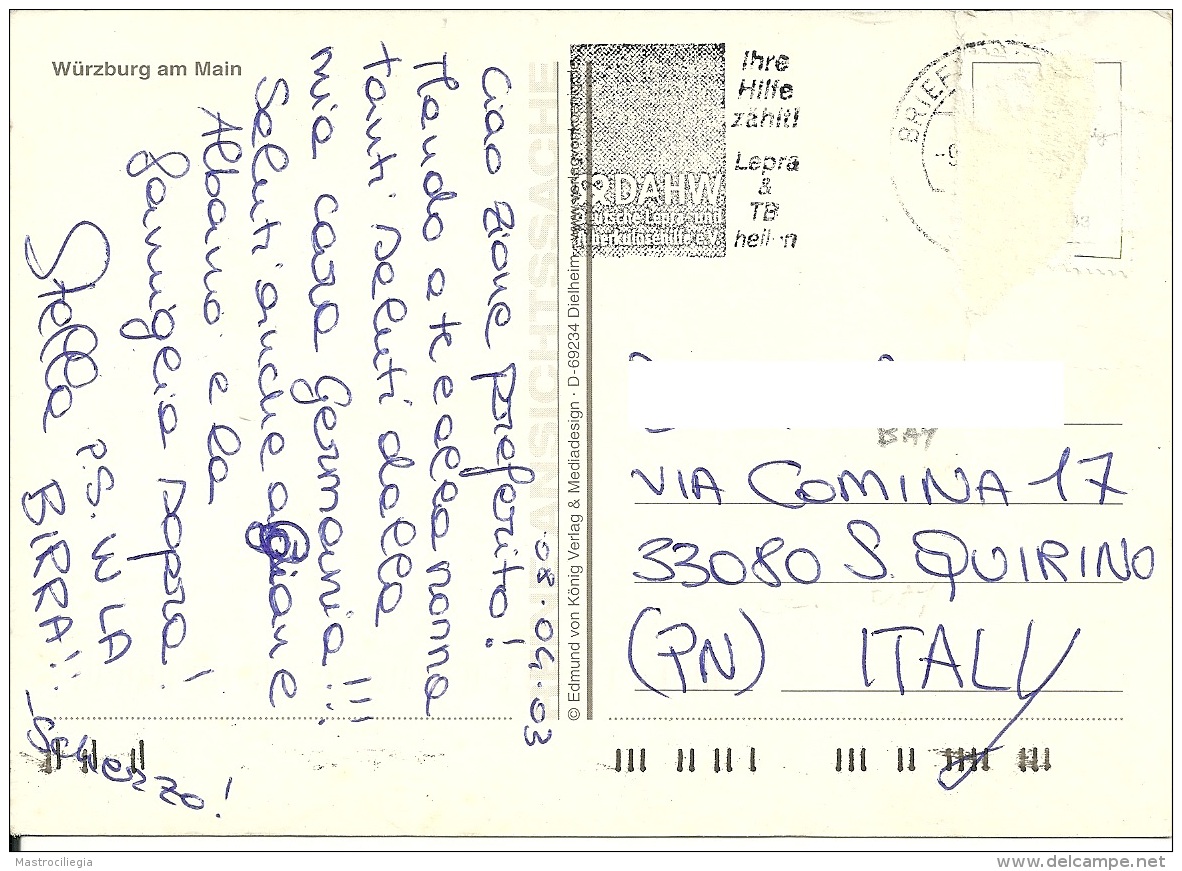 Würzburg am Main
08.04.03
Ciao zione preferito!
Mando a te e alla nonna
tanti saluti dalla
mia cara Germania!!!
Saluti anche a Gian e
Albano e la
famiglia sopra!
Stella
P.S. W LA
BIRRA!!
Scherzo!
ANSICHTSSACHE
© Edmund von König Verlag & Mediadesign · D-69234 Dielheim
Ihre
Hilfe
zählt!
Lepra
&
TB
heilen
DAHW
BRIEF
BAY
VIA COMINA 17
33080 S. QUIRINO
(PN) ITALY
Mastrociliegia
www.delcampe.net